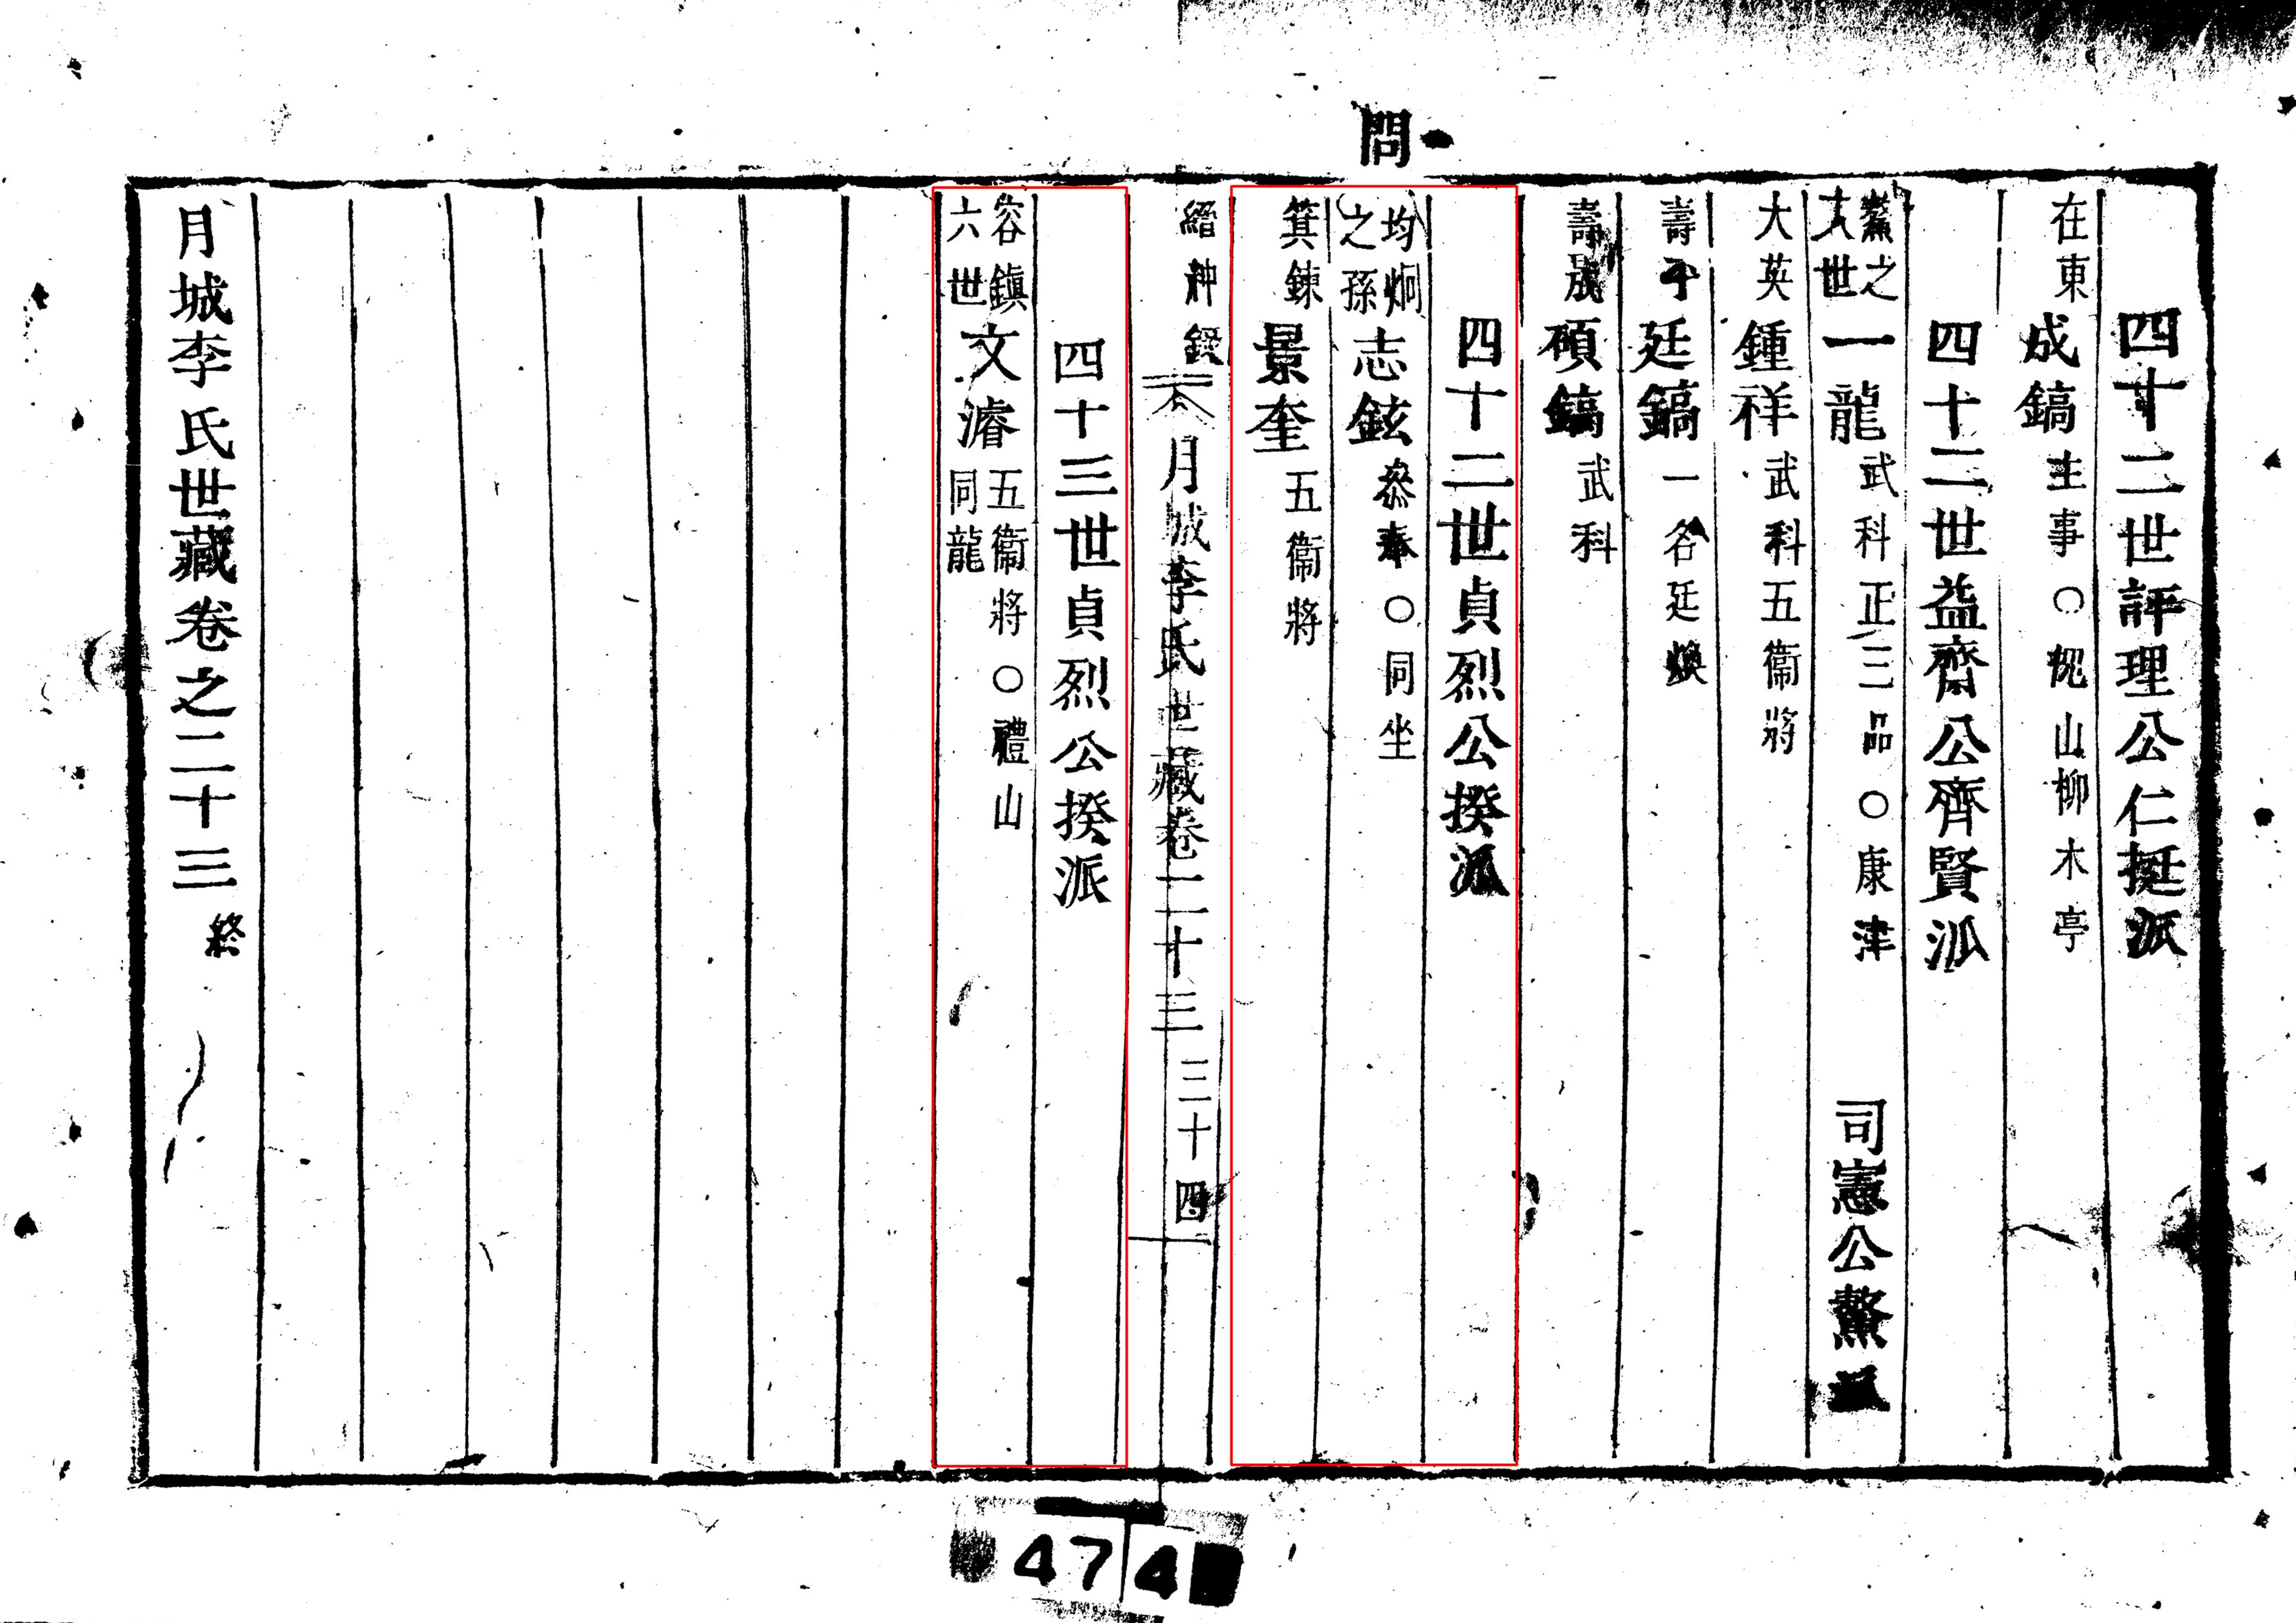 問
四十二世評理公仁挺派
在東
成鎬
主事○槐山柳木亭
四十二世益齋公齊賢派
鰲之
八世
一龍
武科正三品○康津
司憲公鰲派
大英
鍾祥
武科五衞將
壽千
廷鎬
一名廷煥
壽晟
碩鎬
武科
四十二世貞烈公揆派
均炯
之孫
志鉉
叅奉○同坐
箕鍊
景奎
五衞將
縉紳錄 月城李氏世藏卷二十三 三十四
四十三世貞烈公揆派
容鎭
六世
文濬
五衞將○禮山
同龍
月城李氏世藏卷之二十三 終
47 4